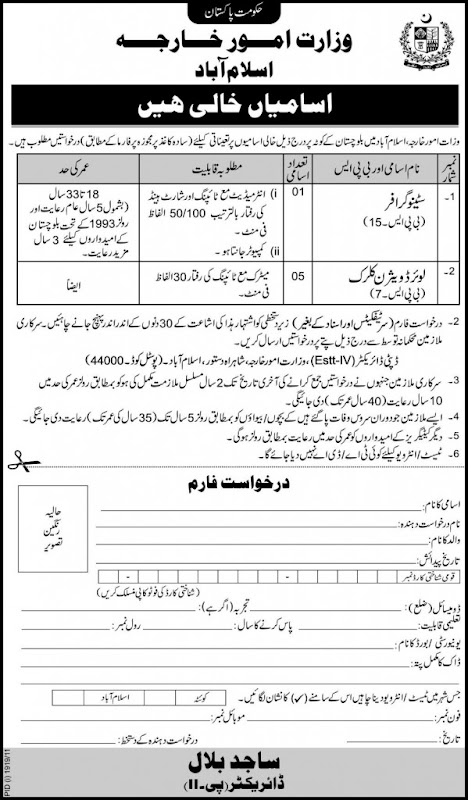 حکومت پاکستان
وزارت امور خارجہ
اسلام آباد
اسامیاں خالی ھیں
وزارت امور خارجہ، اسلام آباد میں بلوچستان کے کوٹہ پر درج ذیل خالی اسامیوں پر تعیناتی کیلئے (سادہ کاغذ پر مجوزہ پروفارما کے مطابق) درخواستیں مطلوب ہیں۔
نمبر شمار
نام اسامی اور بی پی ایس
تعداد اسامی
مطلوبہ قابلیت
عمر کی حد
1-
سٹینوگرافر
(بی پی ایس۔15)
01
i) انٹرمیڈیٹ مع ٹائپنگ اور شارٹ ہینڈ
کی رفتار بالترتیب 50/100 الفاظ
فی منٹ۔
ii) کمپیوٹر جانتا ہو۔
18 تا 33 سال
(بشمول 5 سال عام رعایت اور
رولز 1993 کے تحت بلوچستان
کے امیدواروں کیلئے 3 سال
مزید رعایت۔
2-
لوئر ڈویژن کلرک
(بی پی ایس۔7)
05
میٹرک مع ٹائپنگ کی رفتار 30 الفاظ
فی منٹ۔
ایضاً
2- درخواست فارم (سرٹیفکیٹس اور اسناد کے بغیر) زیر دستخطی کو اشتہار ہذا کی اشاعت کے 30 دنوں کے اندر اندر پہنچ جانے چاہئیں۔ سرکاری
ملازمین محکمانہ توسط سے درج ذیل پتے پر درخواستیں ارسال کریں۔
ڈپٹی ڈائریکٹر (Estt-IV)، وزارت امور خارجہ، شاہراہ دستور، اسلام آباد۔ (پوسٹل کوڈ۔44000)
3- سرکاری ملازمین جنہوں نے درخواستیں جمع کرانے کی آخری تاریخ تک 2 سال مسلسل ملازمت مکمل کی ہو کو بمطابق رولز عمر کی حد میں
10 سال رعایت (40 سال عمر تک) دی جائیگی۔
4- ایسے ملازمین جو دوران سروس وفات پا گئے ہیں کے بچوں/بیواؤں کو بمطابق رولز 5 سال تک (35 سال کی عمر تک) رعایت دی جائیگی۔
5- دیگر کیٹیگریز کے امیدواروں کو عمر کی حد میں رعایت بمطابق رولز ہوگی۔
6- ٹیسٹ/انٹرویو کیلئے کوئی ٹی اے/ڈی اے نہیں دیا جائے گا۔
درخواست فارم
حالیہ
رنگین
تصویر
اسامی کا نام:
نام درخواست دہندہ:
والد کا نام:
تاریخ پیدائش:
قومی شناختی کارڈ نمبر
(شناختی کارڈ کی فوٹو کاپی منسلک کریں)
ڈومیسائل (ضلع): تجربہ (اگر ہے):
تعلیمی قابلیت: پاس کرنے کا سال: رول نمبر:
یونیورسٹی/بورڈ کا نام:
ڈاک کا مکمل پتہ:
جس شہر میں ٹیسٹ/انٹرویو دینا چاہیں اس کے سامنے (✓) کا نشان لگائیں۔ کوئٹہ اسلام آباد
فون نمبر: موبائل نمبر:
تاریخ: درخواست دہندہ کے دستخط:
ساجد بلال
ڈائریکٹر (پی۔II)
PID (i) 1919/11